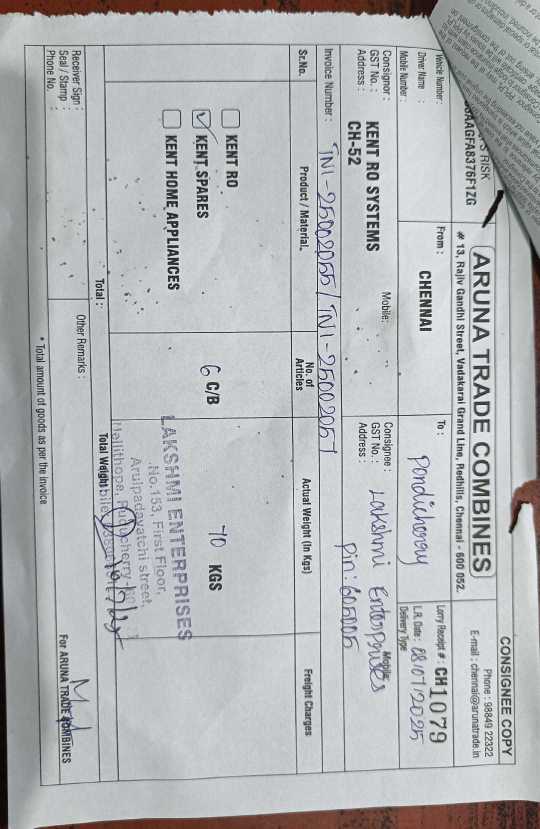 CONSIGNEE COPY
S RISK
AAGFA8376F1ZG
ARUNA TRADE COMBINES
# 13, Rajiv Gandhi Street, Vadakarai Grand Line, Redhills, Chennai - 600 052.
Phone : 98849 22322
E-mail : chennai@arunatrade.in
Vehicle Number :
Driver Name :
Mobile Number :
From :
CHENNAI
To :
Pondicherry
Lorry Receipt # : CH1079
L.R. Date : 08/07/2025
Delivery Type
Consignor : KENT RO SYSTEMS
Mobile:
GST No. : CH-52
Address :
Consignee : Lakshmi Enterprises
Mobile:
GST No. :
Address : Pin: 605005
Invoice Number : TN1-25002055/TN1-25002057
Sr.No.
Product / Material.
No. of Articles
Actual Weight (In Kgs)
Freight Charges
KENT RO
KENT SPARES
KENT HOME APPLIANCES
6 C/B
70 KGS
LAKSHMI ENTERPRISES
No.153, First Floor,
Arulpadayatchi street,
Total :
Total Weight
Receiver Sign :
Seal / Stamp :
Phone No. :
Other Remarks :
For ARUNA TRADE COMBINES
* Total amount of goods as per the invoice